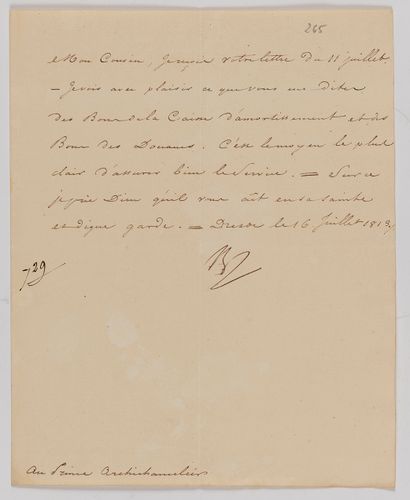 265
Mon Cousin, Je reçois votre lettre du 11 juillet.
— Je vois avec plaisir ce que vous me dites
des Bons de la Caisse d'amortissement et des
Bons des Douanes. C'est le moyen le plus
clair d'assurer bien le Service. = Sur ce
je prie Dieu qu'il vous ait en sa sainte
et digne garde. = Dresde le 16 Juillet 1813
729
Au Prince Archichancelier